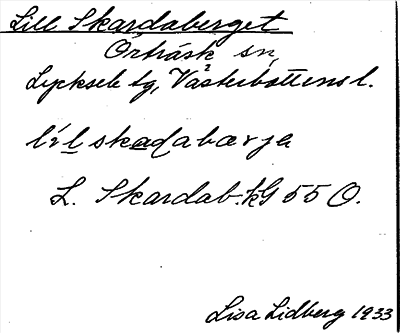 Lill Skardaberget
Örträsk sn,
Lycksele tg, Västerbottens l.
lìl skadabærja
L. Skardab. kG 55 O.
Lisa Lidberg 1933